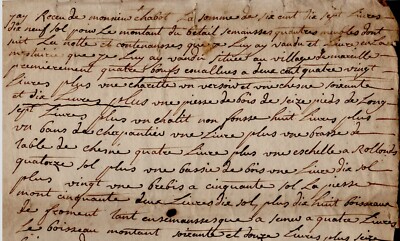 jay Receu de monsieur chabot La somme de six cent dix sept Livres
dix neuf sol pour Le montant du betail semansses quatres meubles dont
suit La notte et contenansses que je Luy ay vandu et Livré en la
metairie que je Luy ay vandu situee au village de
premierement quatre boeufs a deux cent quatre vingt
Livres plus une charette un verson et une chesne soixante
et dix Livres plus une piesse de bois de seize pieds de Long
sept Livres plus un chalit non fonssé huit Livres plus
un banc de charpantier une Livre plus une basse de
table de chesne quatre Livre plus une eschelle a Rollons
quatorze sol plus une bassie de bois une Livre dix sol
plus vingt une brebis a cinquante sol La piesse
mont cinquante deux Livres dix sol plus dix huit boisseaux
de froment tant ensemanssés que a semer a quatre Livres
Le boisseau montant soixante et douze Livres plus sept